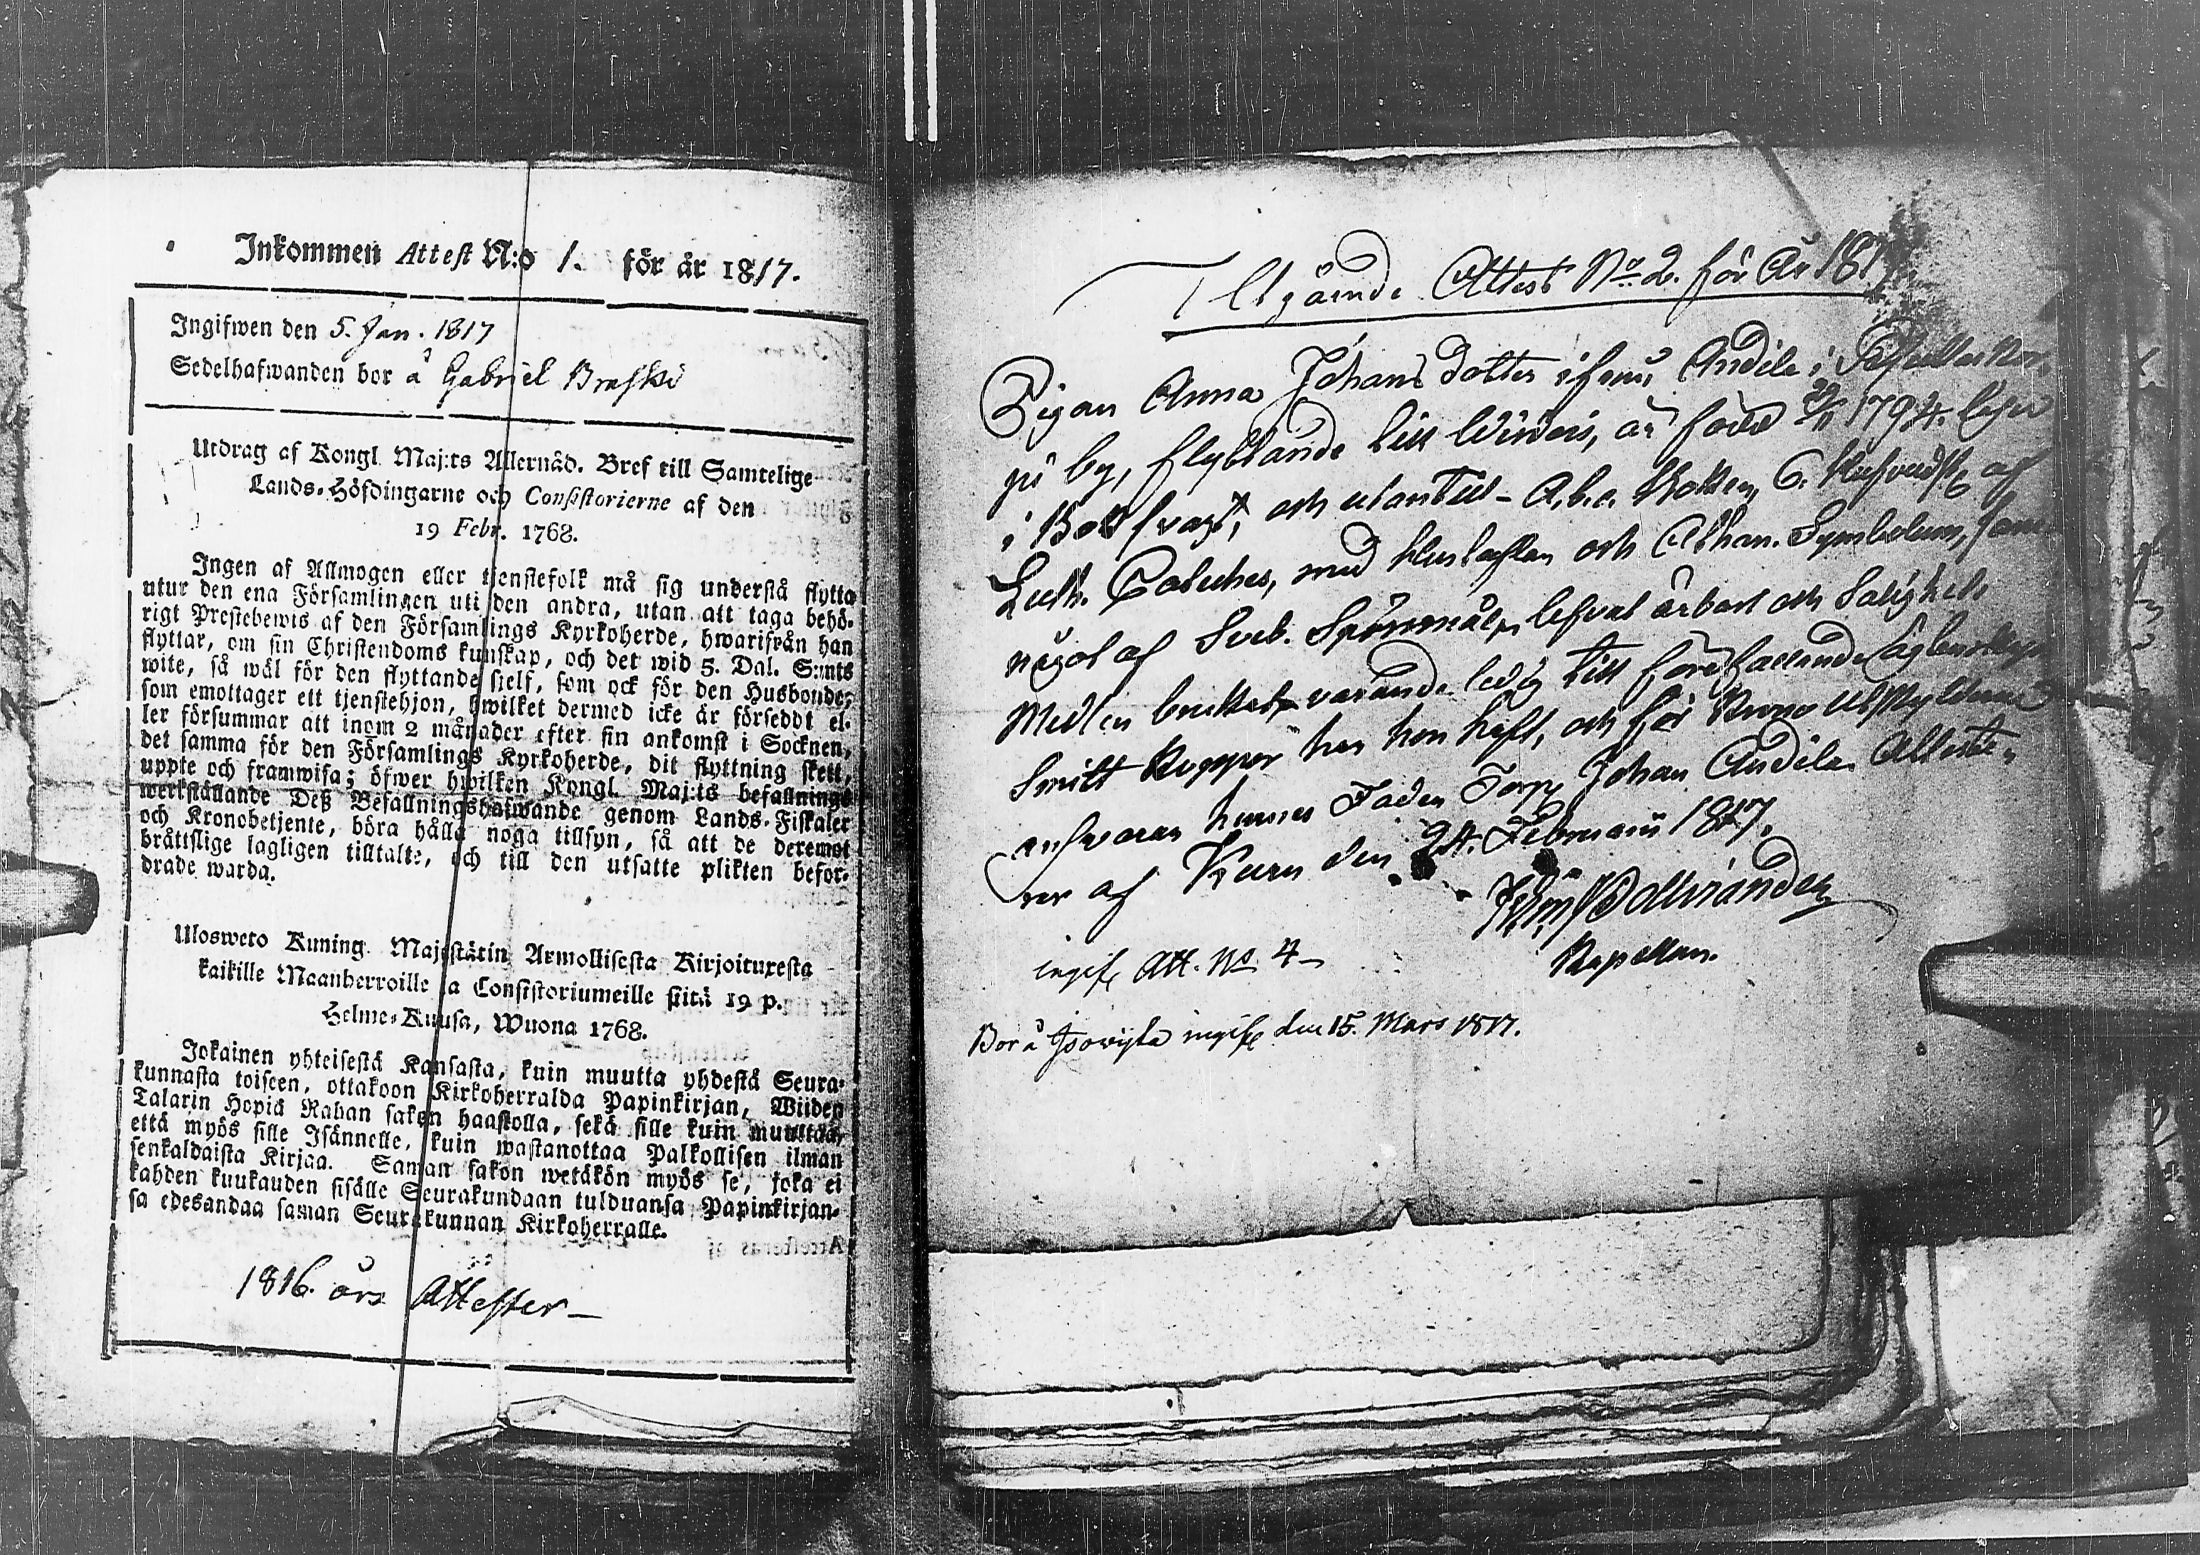 Inkommen Attest N:o 1. för år 1817.
Ingifwen den 5. Jan. 1817
Sedelhafwanden bor å Gabriel Braski
Utdrag af Kongl. Maj:ts Allernåd. Bref till Samtelige
Lands-Höfdingarne och Consistorierne af den
19 Febr. 1768.
Ingen af Allmogen eller tjenstefolk må sig understå flytta
utur den ena Församlingen uti den andra, utan att taga behö-
rigt Prestebewis af den Församlings Kyrkoherde, hwarifrån han
flyttar, om sin Christendoms kunskap, och det wid 5. Dal. S:mts
wite, så wäl för den flyttande sjelf, som ock för den Husbonde,
som emottager ett tjenstehjon, hwilket dermed icke är försedt el-
ler försummar att inom 2 månader efter sin ankomst i Socknen,
det samma för den Församlings Kyrkoherde, dit flyttning skett,
uppte och framwisa; öfwer hwilken Kongl. Maj:ts befallnings
werkställande Deß Befallningshafwande genom Lands-Fiskaler
och Kronobetjente, böra hålla noga tillsyn, så att de deremot
bråttslige lagligen tilltalte, och till den utsatte plikten befor-
drade warda.
Ulosweto Kuning. Majestätin Armollisesta Kirjoituxesta
kaikille Maanherroille ja Consistoriumeille siitä 19 p.
Helme-Kuusa, Wuona 1768.
Jokainen yhteisestä Kansasta, kuin muutta yhdestä Seura-
kunnasta toiseen, ottakoon Kirkoherralda Papinkirjan, Wiiden
Talarin Hopiä Rahan sakon haastolla, sekä sille kuin muuttaa,
että myös sille Isännelle, kuin wastanottaa Palkollisen ilman
senkaldaista Kirjaa. Saman sakon wetäkön myös se, joka ei
kahden kuukauden sisälle Seurakundaan tulduansa Papinkirjan-
sa edesandaa saman Seurakunnan Kirkoherralle.
1816. års Attester
Utgående Attest No 2. för År 181
Pigan Anna Johans dotter ifrån Andila i
by, flyttande till Wiwois, är född 1794. läser
i Bok svagt, och utantill A.b.c. boken, af
Luth. Cateches, med Hustaflan och Athan. Symbolum, samt
något af Sveb. Spörsmål, lefvat ärbart och Salighets
Medlen brukat, varande ledig till förefallande
Smitt Koppor har hon haft, och för Krono Utskylderna
answarar hennes Fader Torp Johan Andila. Atteste-
rar af Keuru den 24. Februarii 1817.
Kapellan.
ingif. Att. No 4
Bor å Isowista ingif. den 15. Mars 1817.